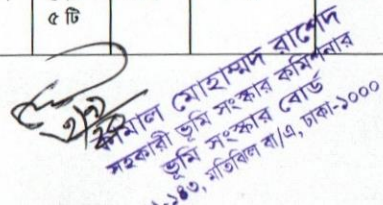 ৫ টি
কামাল মোহাম্মদ রাশেদ
সহকারী ভূমি সংস্কার কমিশনার
ভূমি সংস্কার বোর্ড
১৪৩, মতিঝিল বা/এ, ঢাকা-১০০০